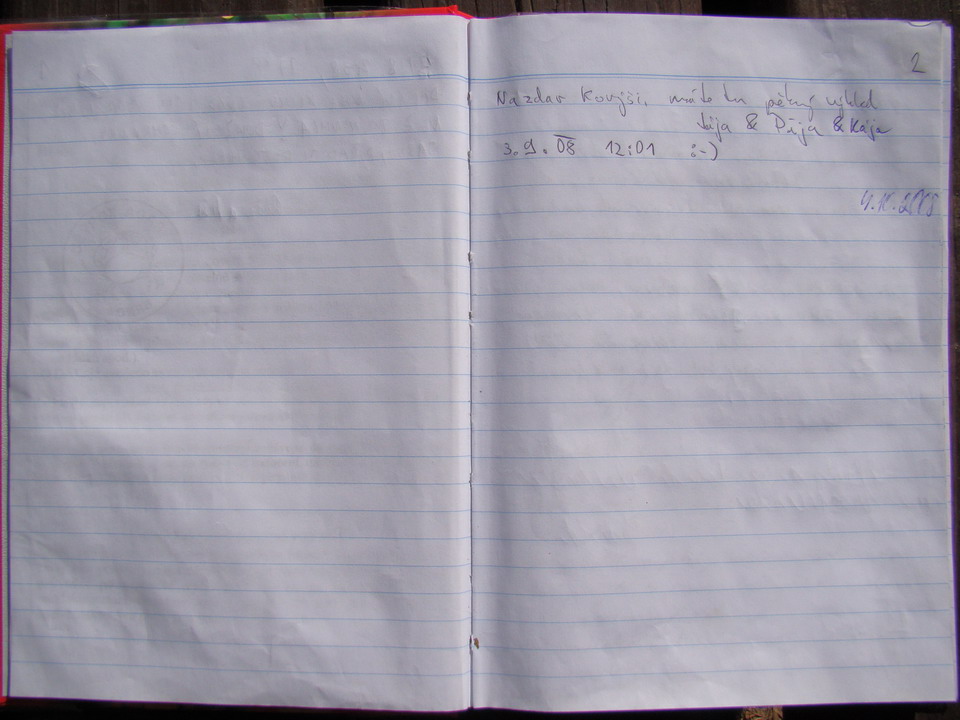 2
Nazdar Kovjši, máte tu pěkný výhled
Jája & Pája & Kája
3.9.08 12:01 :-)
4.10.2008